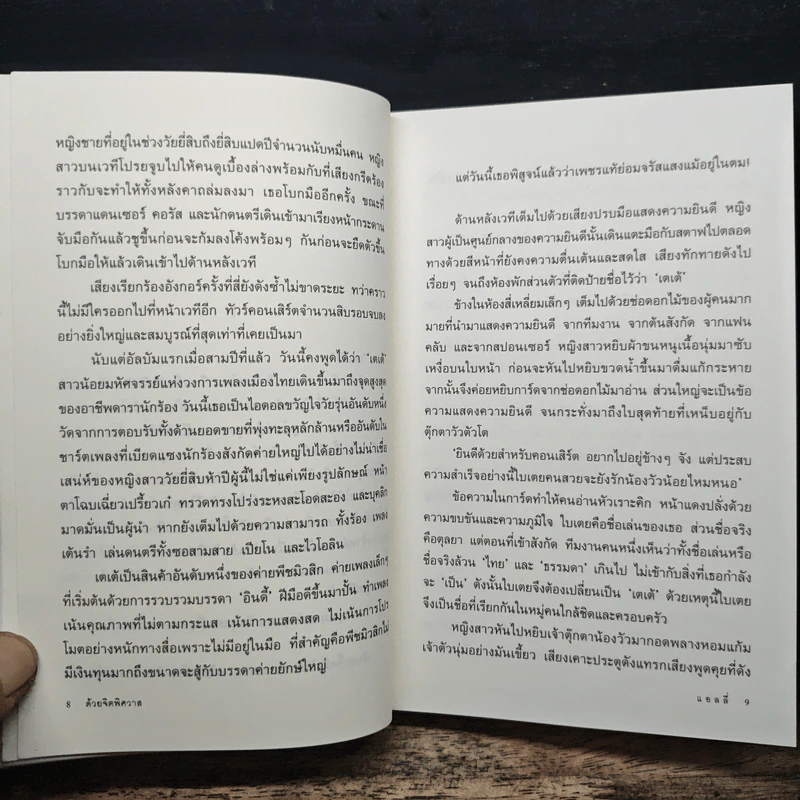 หญิงชายที่อยู่ในช่วงวัยยี่สิบถึงยี่สิบแปดปีจำนวนนับหมื่นคน หญิง
สาวบนเวทีโปรยจูบไปให้คนดูเบื้องล่างพร้อมกับที่เสียงกรีดร้อง
ราวกับจะทำให้ทั้งหลังคาถล่มลงมา เธอโบกมืออีกครั้ง ขณะที่
บรรดาแดนเซอร์ คอรัส และนักดนตรีเดินเข้ามาเรียงหน้ากระดาน
จับมือกันแล้วชูขึ้นก่อนจะก้มลงโค้งพร้อมๆ กันก่อนจะยืดตัวขึ้น
โบกมือให้แล้วเดินเข้าไปด้านหลังเวที
เสียงเรียกร้องอังกอร์ครั้งที่สี่ยังดังซ้ำไม่ขาดระยะ ทว่าคราว
นี้ไม่มีใครออกไปที่หน้าเวทีอีก ทัวร์คอนเสิร์ตจำนวนสิบรอบจบลง
อย่างยิ่งใหญ่และสมบูรณ์ที่สุดเท่าที่เคยเป็นมา
นับแต่อัลบัมแรกเมื่อสามปีที่แล้ว วันนี้คงพูดได้ว่า 'เตเต้'
สาวน้อยมหัศจรรย์แห่งวงการเพลงเมืองไทยเดินขึ้นมาถึงจุดสูงสุด
ของอาชีพดารานักร้อง วันนี้เธอเป็นไอดอลขวัญใจวัยรุ่นอันดับหนึ่ง
วัดจากการตอบรับทั้งด้านยอดขายที่พุ่งทะลุหลักล้านหรืออันดับใน
ชาร์ตเพลงที่เบียดแซงนักร้องสังกัดค่ายใหญ่ไปได้อย่างไม่น่าเชื่อ
เสน่ห์ของหญิงสาววัยยี่สิบห้าปีผู้นี้ไม่ใช่แค่เพียงรูปลักษณ์ หน้า
ตาโฉบเฉี่ยวเปรี้ยวเก๋ ทรวดทรงโปร่งระหงสะโอดสะอง และบุคลิก
มาดมั่นเป็นผู้นำ หากยังเต็มไปด้วยความสามารถ ทั้งร้อง เพลง
เต้นรำ เล่นดนตรีทั้งซอสามสาย เปียโน และไวโอลิน
เตเต้เป็นสินค้าอันดับหนึ่งของค่ายพีชมิวสิก ค่ายเพลงเล็กๆ
ที่เริ่มต้นด้วยการรวบรวมบรรดา 'อินดี้' ฝีมือดีขึ้นมาปั้น ทำเพลง
เน้นคุณภาพที่ไม่ตามกระแส เน้นการแสดงสด ไม่เน้นการโปร
โมตอย่างหนักทางสื่อเพราะไม่มีอยู่ในมือ ที่สำคัญคือพีชมิวสิกไม่
มีเงินทุนมากถึงขนาดจะสู้กับบรรดาค่ายยักษ์ใหญ่
8 ด้วยจิตพิศวาส
แต่วันนี้เธอพิสูจน์แล้วว่าเพชรแท้ย่อมจรัสแสงแม้อยู่ในตม!
ด้านหลังเวทีเต็มไปด้วยเสียงปรบมือแสดงความยินดี หญิง
สาวผู้เป็นศูนย์กลางของความยินดีนั้นเดินแตะมือกับสตาฟไปตลอด
ทางด้วยสีหน้าที่ยังคงความตื่นเต้นและสดใส เสียงทักทายดังไป
เรื่อยๆ จนถึงห้องพักส่วนตัวที่ติดป้ายชื่อไว้ว่า 'เตเต้'
ข้างในห้องสี่เหลี่ยมเล็กๆ เต็มไปด้วยช่อดอกไม้ของผู้คนมาก
มายที่นำมาแสดงความยินดี จากทีมงาน จากต้นสังกัด จากแฟน
คลับ และจากสปอนเซอร์ หญิงสาวหยิบผ้าขนหนูเนื้อนุ่มมาซับ
เหงื่อบนใบหน้า ก่อนจะหันไปหยิบขวดน้ำขึ้นมาดื่มแก้กระหาย
จากนั้นจึงค่อยหยิบการ์ดจากช่อดอกไม้มาอ่าน ส่วนใหญ่จะเป็นข้อ
ความแสดงความยินดี จนกระทั่งมาถึงใบสุดท้ายที่เหน็บอยู่กับ
ตุ๊กตาวัวตัวโต
'ยินดีด้วยสำหรับคอนเสิร์ต อยากไปอยู่ข้างๆ จัง แต่ประสบ
ความสำเร็จอย่างนี้ใบเตยคนสวยจะยังรักน้องวัวน้อยไหมหนอ'
ข้อความในการ์ดทำให้คนอ่านหัวเราะคิก หน้าแดงปลั่งด้วย
ความขบขันและความภูมิใจ ใบเตยคือชื่อเล่นของเธอ ส่วนชื่อจริง
คือตุลยา แต่ตอนที่เข้าสังกัด ทีมงานคนหนึ่งเห็นว่าทั้งชื่อเล่นหรือ
ชื่อจริงล้วน 'ไทย' และ 'ธรรมดา' เกินไป ไม่เข้ากับสิ่งที่เธอกำลัง
จะ 'เป็น' ดังนั้นใบเตยจึงต้องเปลี่ยนเป็น 'เตเต้' ด้วยเหตุนี้ใบเตย
จึงเป็นชื่อที่เรียกกันในหมู่คนใกล้ชิดและครอบครัว
หญิงสาวหันไปหยิบเจ้าตุ๊กตาน้องวัวมากอดพลางหอมแก้ม
เจ้าตัวนุ่มอย่างมันเขี้ยว เสียงเคาะประตูดังแทรกเสียงพูดคุยที่ดัง
แอลลี่ 9